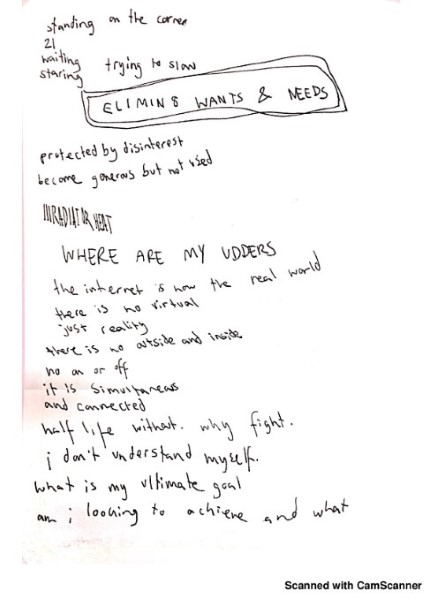 standing on the corner
21
waiting
staring trying to slow
ELIMIN8 WANTS & NEEDS
protected by disinterest
become generous but not used
IRRADIATOR HEAT
WHERE ARE MY UDDERS
the internet is now the real world
there is no virtual
just reality
there is no outside and inside
no on or off
it is simultaneous
and connected
half life without. why fight.
i don't understand myself.
what is my ultimate goal
am i looking to achieve and what
Scanned with CamScanner